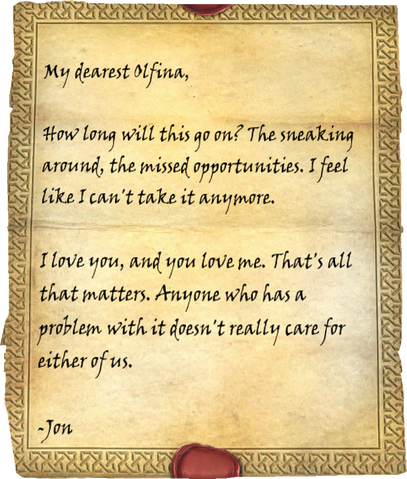 My dearest Olfina,
How long will this go on? The sneaking
around, the missed opportunities. I feel
like I can't take it anymore.
I love you, and you love me. That's all
that matters. Anyone who has a
problem with it doesn't really care for
either of us.
~Jon